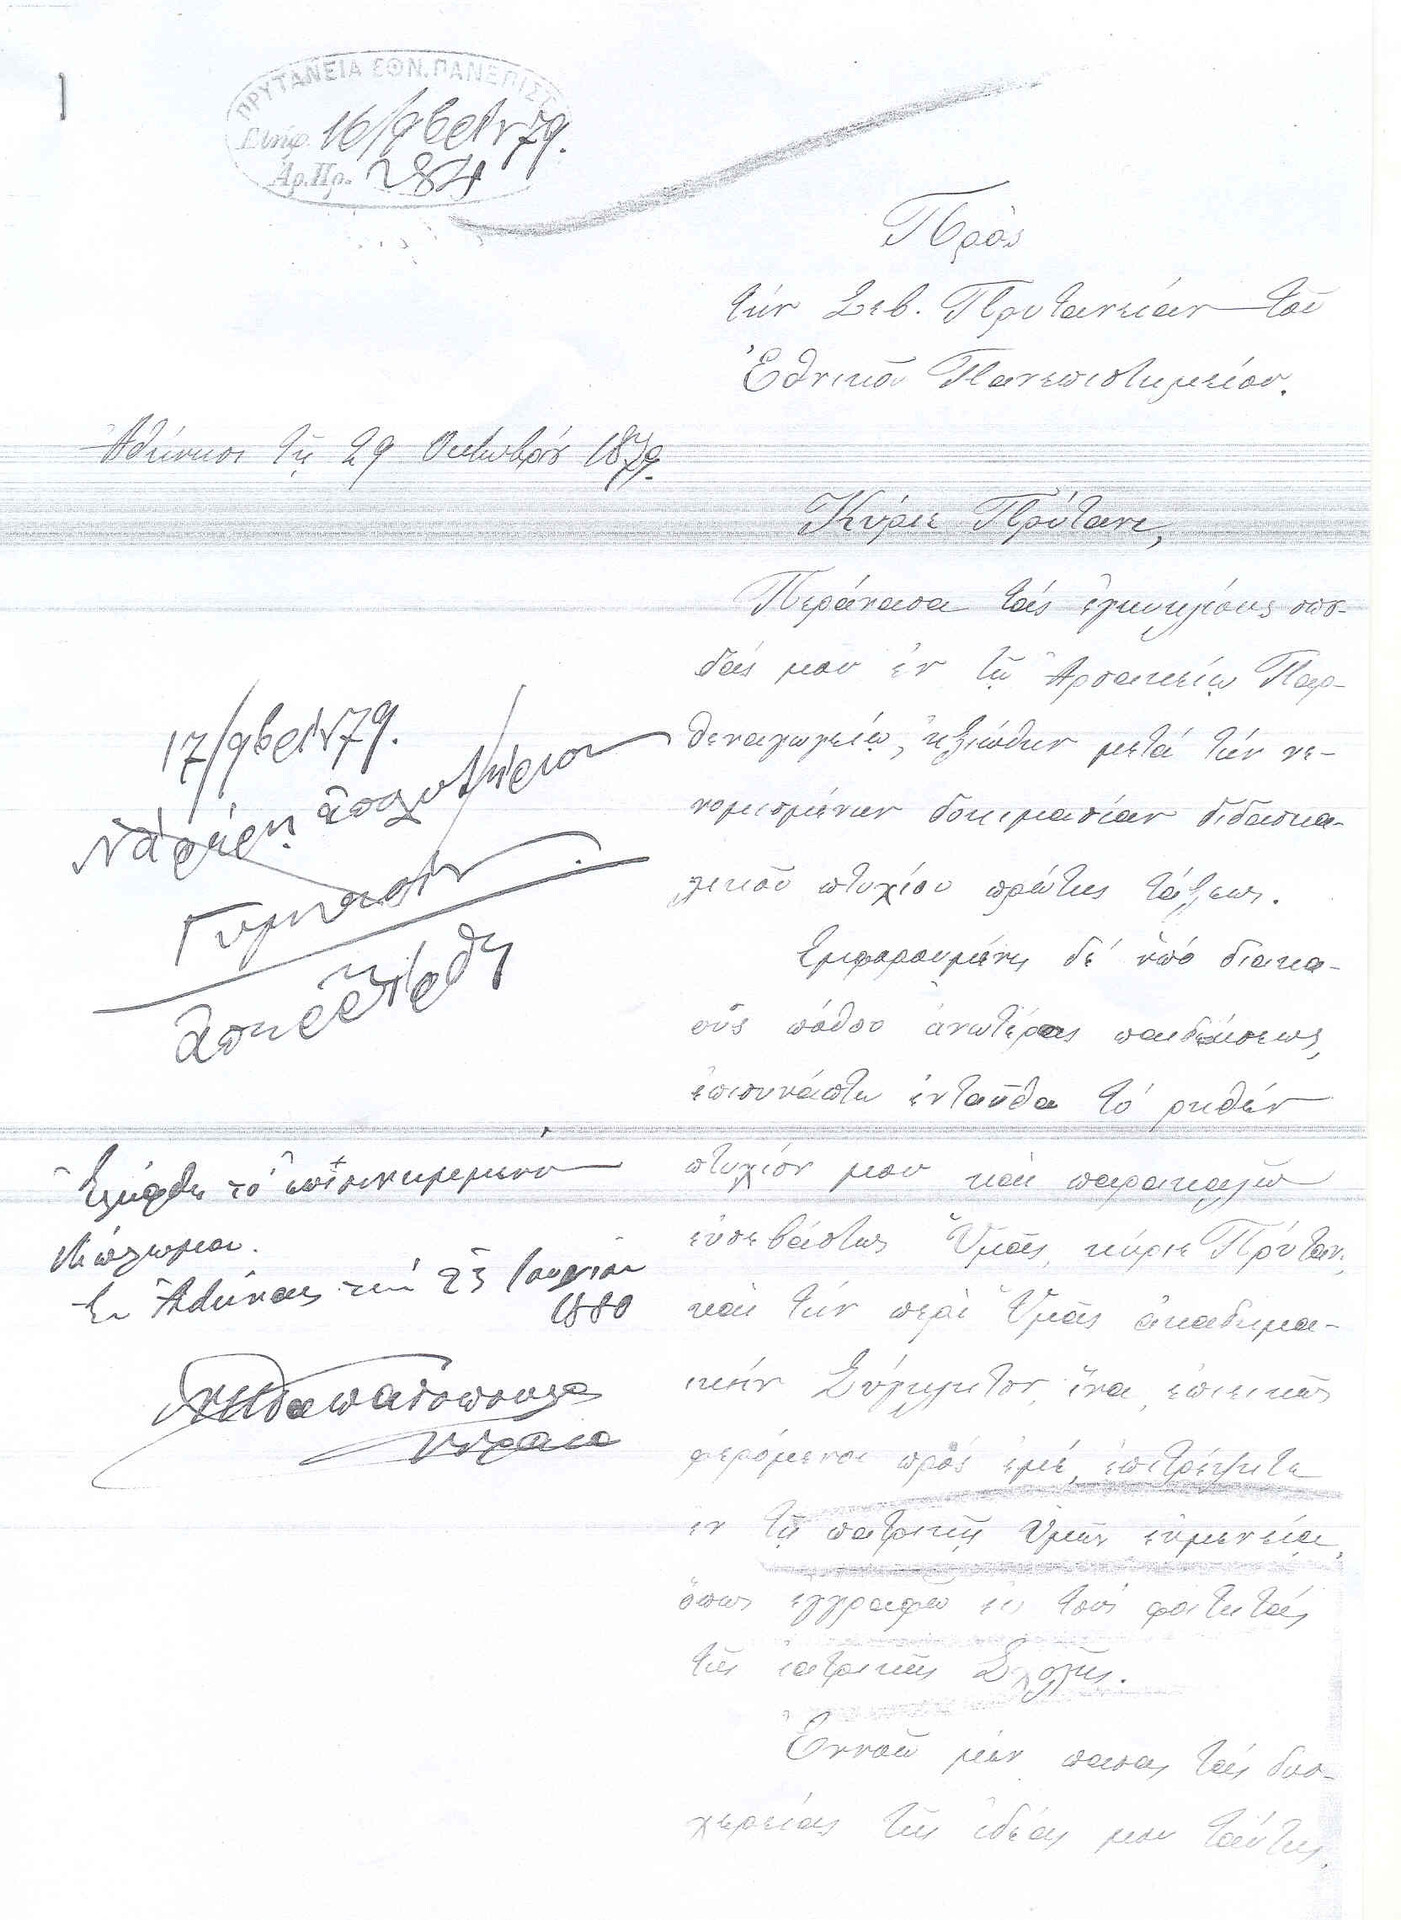 ΠΡΥΤΑΝΕΙΑ ΕΘΝ. ΠΑΝΕΠΙΣΤ
Ἐλήφ. 16/9βρίου 79.
Ἀρ. Πρ. 284
Πρὸς
τὴν Σεβ. Πρυτανείαν τοῦ
Ἐθνικοῦ Πανεπιστημείου.
Ἀθήνησι τῇ 29 Ὀκτωβρίου 1879.
Κύριε Πρύτανι,
Περάνασα τὰς ἐγκυκλίους σπου-
δάς μου ἐν τῷ Ἀρσακείῳ Παρ-
θεναγωγείῳ, ἠξιώθην μετὰ τὴν νε-
νομισμένην δοκιμασίαν διδασκα-
λικοῦ πτυχίου πρώτης τάξεως.
Ἐμφορουμένη δὲ ὑπὸ διακα-
οῦς πόθου ἀνωτέρας παιδεύσεως,
ἐπισυνάπτω ἐνταῦθα τὸ ῥηθὲν
πτυχίον μου καὶ παρακαλῶ
εὐσεβάστως Ὑμᾶς, κύριε Πρύτανι,
καὶ τὴν περὶ Ὑμᾶς ἀκαδημα-
ικὴν Σύγκλητον, ἵνα, ἐπιεικῶς
φερόμενοι πρὸς ἐμέ, ἐπιτρέψητε
ἐν τῇ πατρικῇ Ὑμῶν εὐμενείᾳ,
ὅπως ἐγγραφῶ εἰς τοὺς φοιτητὰς
τῆς ἰατρικῆς Σχολῆς.
Ἐννοῶ μὲν πάσας τὰς δυσ-
χερείας τῆς ἰδέας μου ταύτης,
17/9βρίου 79.
Νὰ φέρῃ ἀπολυτήριον
Γυμνασίου.
ἀπερρίφθη
Ἐλήφθη τὸ ἐπισυνημμένον
δίπλωμα.
Ἐν Ἀθήναις τὴν 23 Ἰουνίου
1880
Παπαδοπούλου